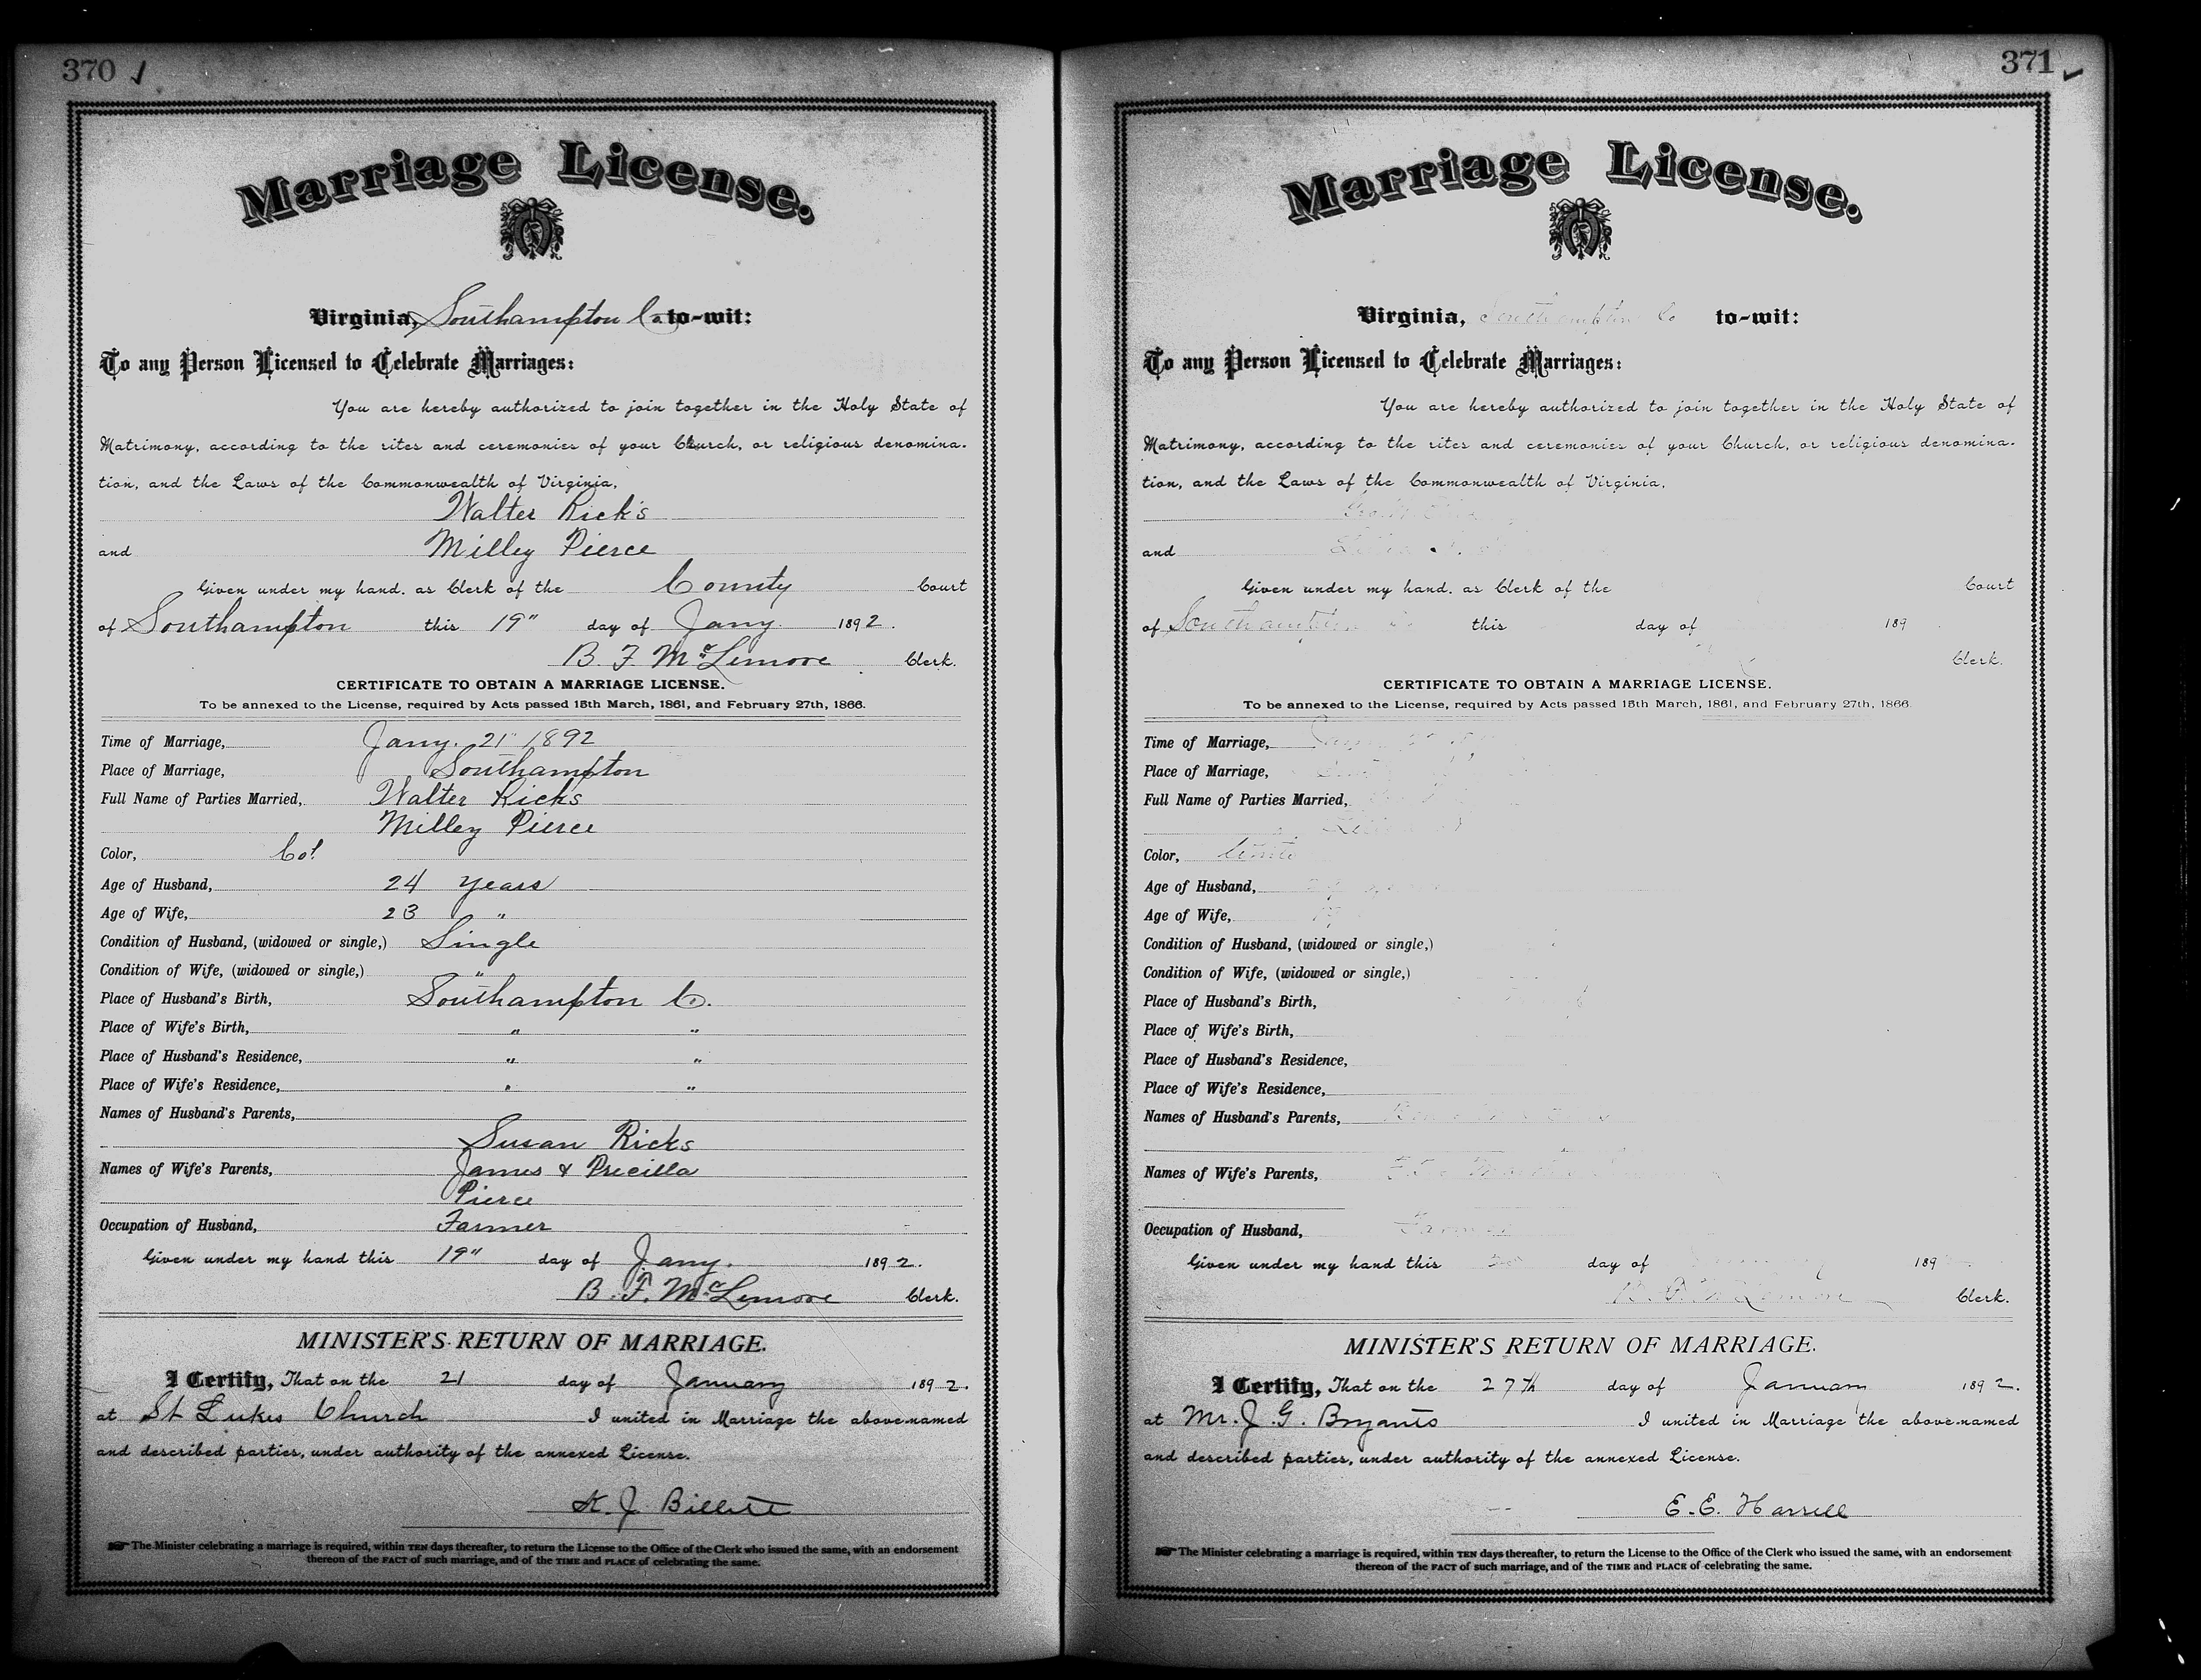 370
Marriage License.
Virginia, Southampton Co to-wit:
To any Person Licensed to Celebrate Marriages:
You are hereby authorized to join together in the Holy State of
Matrimony, according to the rites and ceremonies of your Church, or religious denomina-
tion, and the Laws of the Commonwealth of Virginia,
Walter Ricks
and Milley Pierce
Given under my hand, as Clerk of the County Court
of Southampton this 19" day of Jany. 1892.
B. F. McLemore Clerk.
CERTIFICATE TO OBTAIN A MARRIAGE LICENSE.
To be annexed to the License, required by Acts passed 15th March, 1861, and February 27th, 1866.
Time of Marriage, Jany. 21" 1892
Place of Marriage, Southampton
Full Name of Parties Married, Walter Ricks
Milley Pierce
Color, Col.
Age of Husband, 24 years
Age of Wife, 23 "
Condition of Husband, (widowed or single,) Single
Condition of Wife, (widowed or single,) "
Place of Husband's Birth, Southampton Co.
Place of Wife's Birth, " "
Place of Husband's Residence, " "
Place of Wife's Residence, " "
Names of Husband's Parents,
Susan Ricks
Names of Wife's Parents, James & Precilla
Pierce
Occupation of Husband, Farmer
Given under my hand this 19" day of Jany. 1892.
B. F. McLemore Clerk.
MINISTER'S RETURN OF MARRIAGE.
I Certify, That on the 21 day of January 1892.
at St Lukes Church I united in Marriage the above-named
and described parties, under authority of the annexed License.
J.
☞ The Minister celebrating a marriage is required, within TEN days thereafter, to return the License to the Office of the Clerk who issued the same, with an endorsement
thereof of the FACT of such marriage, and of the TIME and PLACE of celebrating the same.
371
Marriage License.
Virginia, Southampton Co to-wit:
To any Person Licensed to Celebrate Marriages:
You are hereby authorized to join together in the Holy State of
Matrimony, according to the rites and ceremonies of your Church, or religious denomina-
tion, and the Laws of the Commonwealth of Virginia,
and
Given under my hand, as Clerk of the Court
of Southampton this day of 189
Clerk.
CERTIFICATE TO OBTAIN A MARRIAGE LICENSE.
To be annexed to the License, required by Acts passed 15th March, 1861, and February 27th, 1866.
Time of Marriage,
Place of Marriage,
Full Name of Parties Married,
Color, White
Age of Husband,
Age of Wife,
Condition of Husband, (widowed or single,)
Condition of Wife, (widowed or single,)
Place of Husband's Birth,
Place of Wife's Birth,
Place of Husband's Residence,
Place of Wife's Residence,
Names of Husband's Parents,
Names of Wife's Parents,
Occupation of Husband, Farmer
Given under my hand this day of 189
B. F. McLemore Clerk.
MINISTER'S RETURN OF MARRIAGE.
I Certify, That on the 27th day of January 1892.
at Mr. J. G. Bryants I united in Marriage the above-named
and described parties, under authority of the annexed License.
E. E. Harrell
☞ The Minister celebrating a marriage is required, within TEN days thereafter, to return the License to the Office of the Clerk who issued the same, with an endorsement
thereon of the FACT of such marriage, and of the TIME and PLACE of celebrating the same.